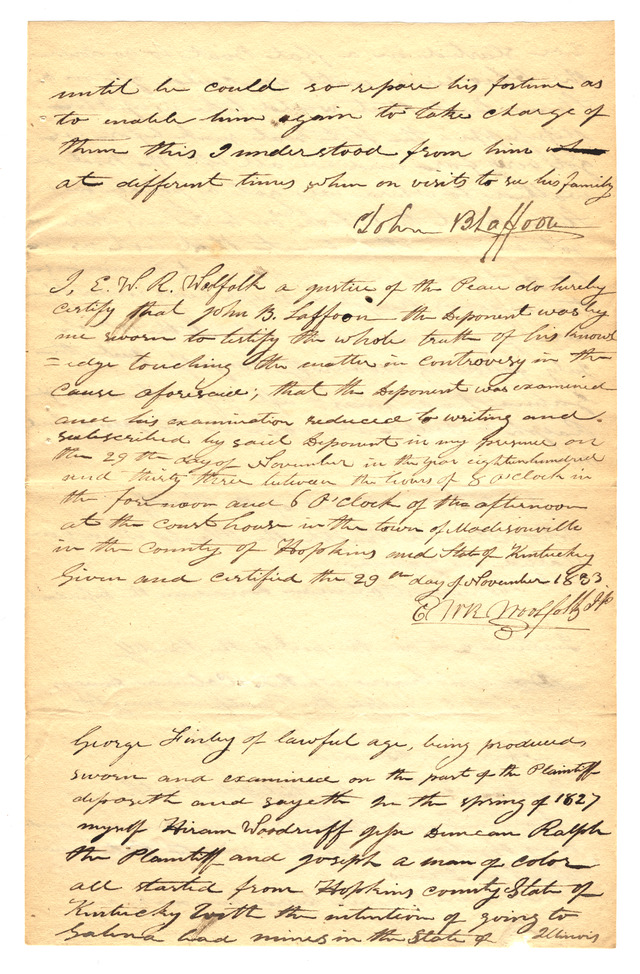 until he could so repare his fortune as
to enable him again to take charge of
them this I understood from him
at different times when on visits to see his family
John B Laffoon
I, E. W. R. Woolfolk a justice of the Peace do hereby
certify that John B. Laffoon the Deponent was by
me sworn to testify the whole truth of his knowl
=edge touching the matter in controversy in the
cause aforesaid; that the Deponent was examined
and his examination reduced to writing and
subscribed by said Deponent in my presence on
the 29th day of November in the year eighteen hundred
and thirty three between the hours of 8 O'clock in
the forenoon and 6 O'Clock of the afternoon
at the court house in the town of Madisonville
in the County of Hopkins and State of Kentucky
Given and certified the 29th day of November 1833
E W R Woolfolk J P
George Finley of lawful age, being produced
sworn and examined on the part of the Plaintiff
deposeth and sayeth In the spring of 1827
myself Hiram Woodruff Duncan Ralph
the Plaintiff and Joseph a man of color
all started from Hopkins county State of
Kentucky With the intention of going to
Galena Lead mines in the State of Illinois